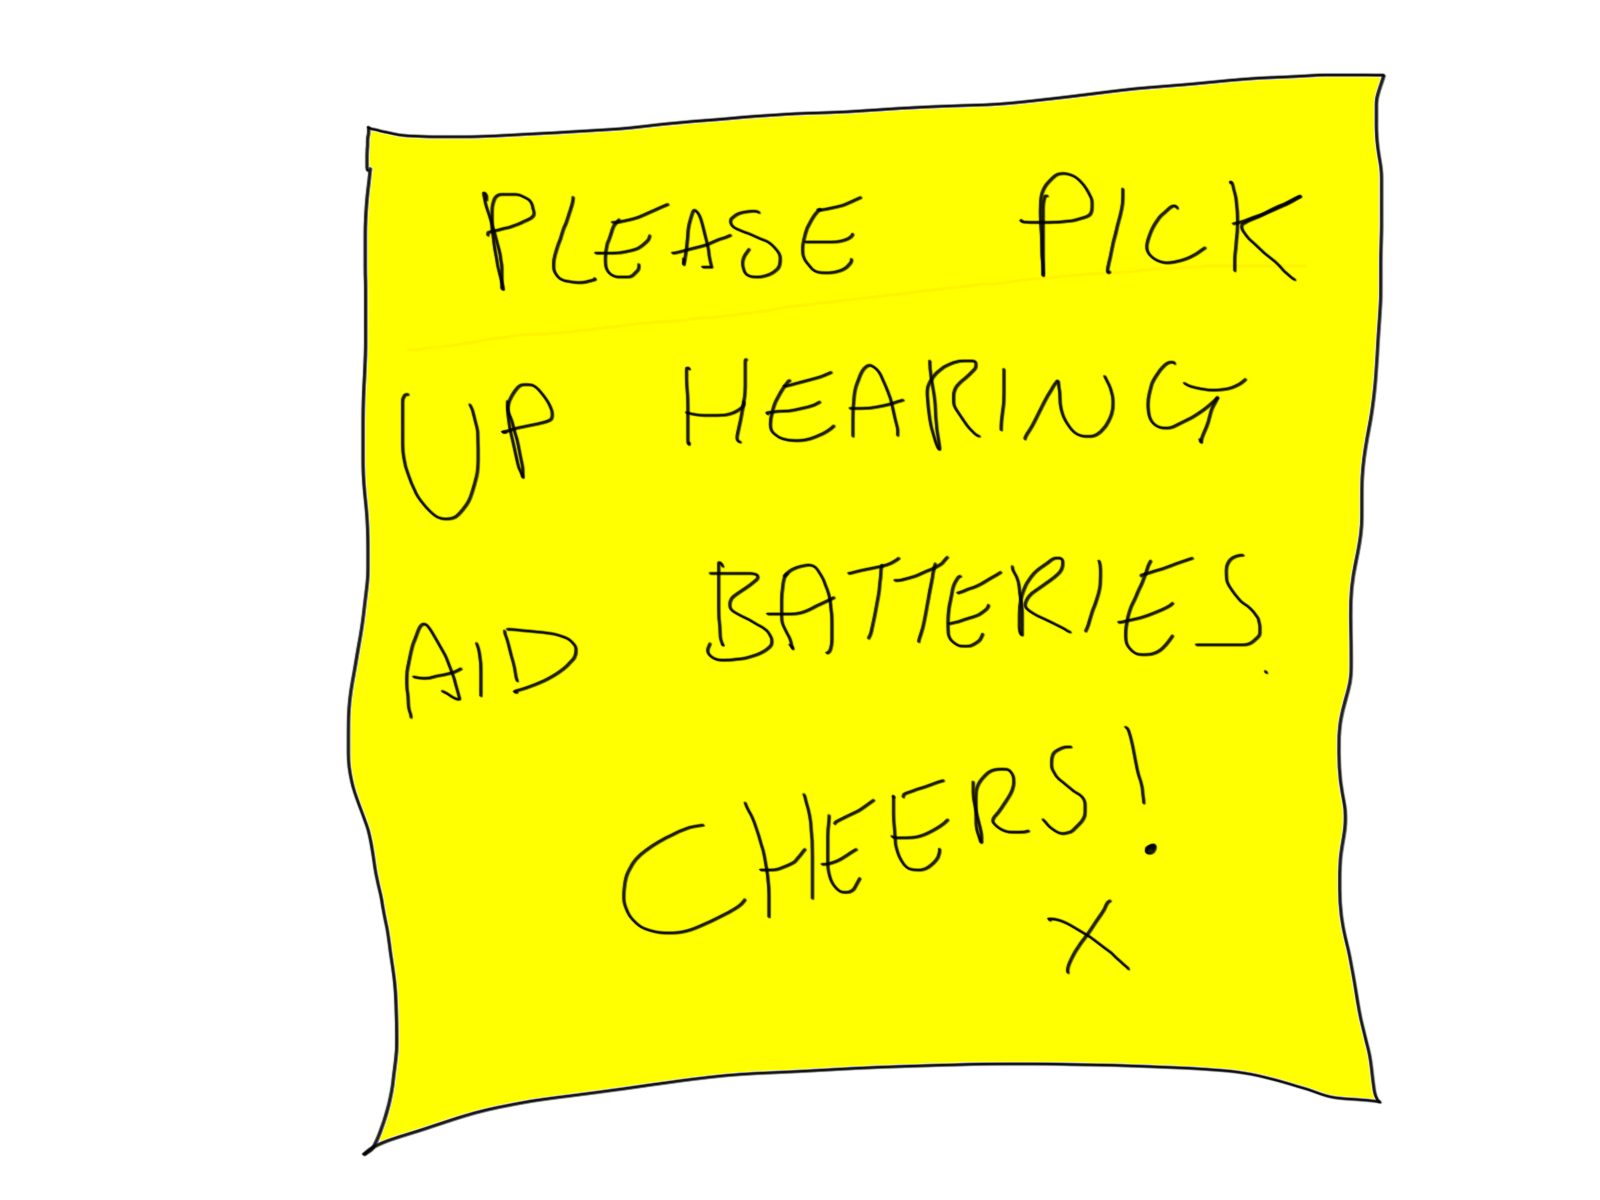 PLEASE PICK
UP HEARING
AID BATTERIES.
CHEERS!
X